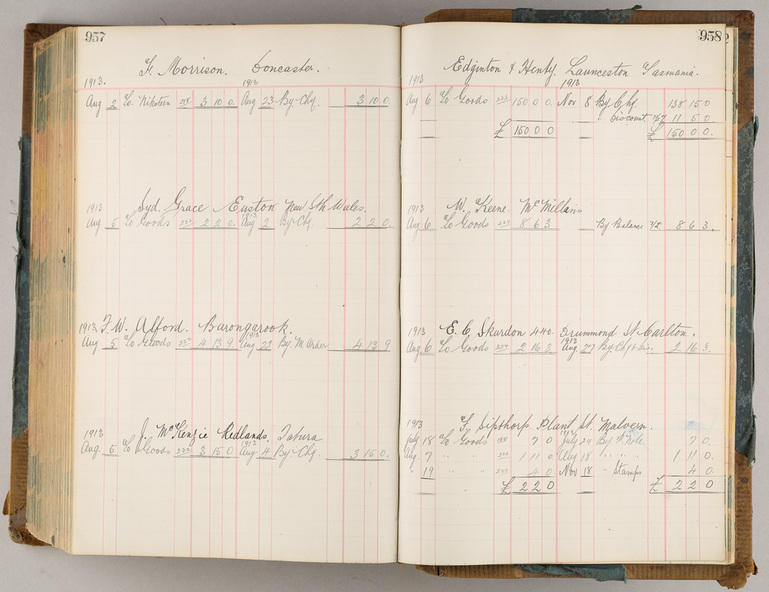 957
F. Morrison. Doncaster.
1913. 1913
Aug 2 To Nikoteen 3 10 0 Aug 23 By Chq. 3 10 0
Syd. Grace Euston New Sth Wales.
1913 1913
Aug 5 To Goods 2 2 0 Aug 2 By Chq. 2 2 0
1913 F. W. Alford. Barongarook.
1913
Aug 5 To Goods 4 13 9 Aug 22 By M. Order 4 13 9
1913 J. McKenzie Redlands. Tatura
1913
Aug. 6 To Goods 3 15 0 Aug 4 By Chq. 3 15 0
958
Edginton & Henty. Launceston Tasmania.
1913 1913
Aug 6 To Goods 150 0 0 Nov 8 By Chq 138 15 0
Discount 11 5 0
£ 150 0 0 £ 150 0 0
1913 W. Keene McMillans
Aug 6 To Goods 8 6 3 By Balance 8 6 3
1913 E. C. Skurdon 440 Drummond St. Carlton.
1913
Aug 6 To Goods 2 16 3 Aug 27 By Chq & Dis. 2 16 3
1913 Plant St. Malvern.
1913
July 18 To Goods 7 0 July 24 By P. Note 7 0
Aug 7 " " 1 11 0 Aug 18 " " " 1 11 0
" 19 " " 4 0 Nov 18 " Stamps 4 0
£ 2 2 0 £ 2 2 0